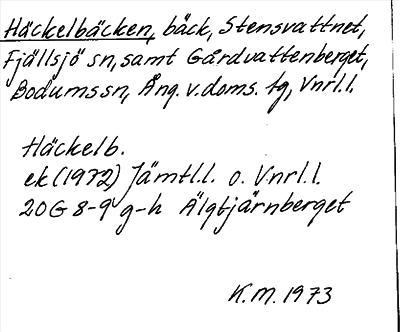 Häckelbäcken, bäck, Stensvattnet,
Fjällsjö sn, samt Gårdvattenberget,
Bodums sn, Ång. v. doms. tg, Vnrl.l.
Häckelb.
ek (1972) Jämtl.l. o. Vnrl.l.
20G 8-9 g-h Älgtjärnberget
K.M. 1973